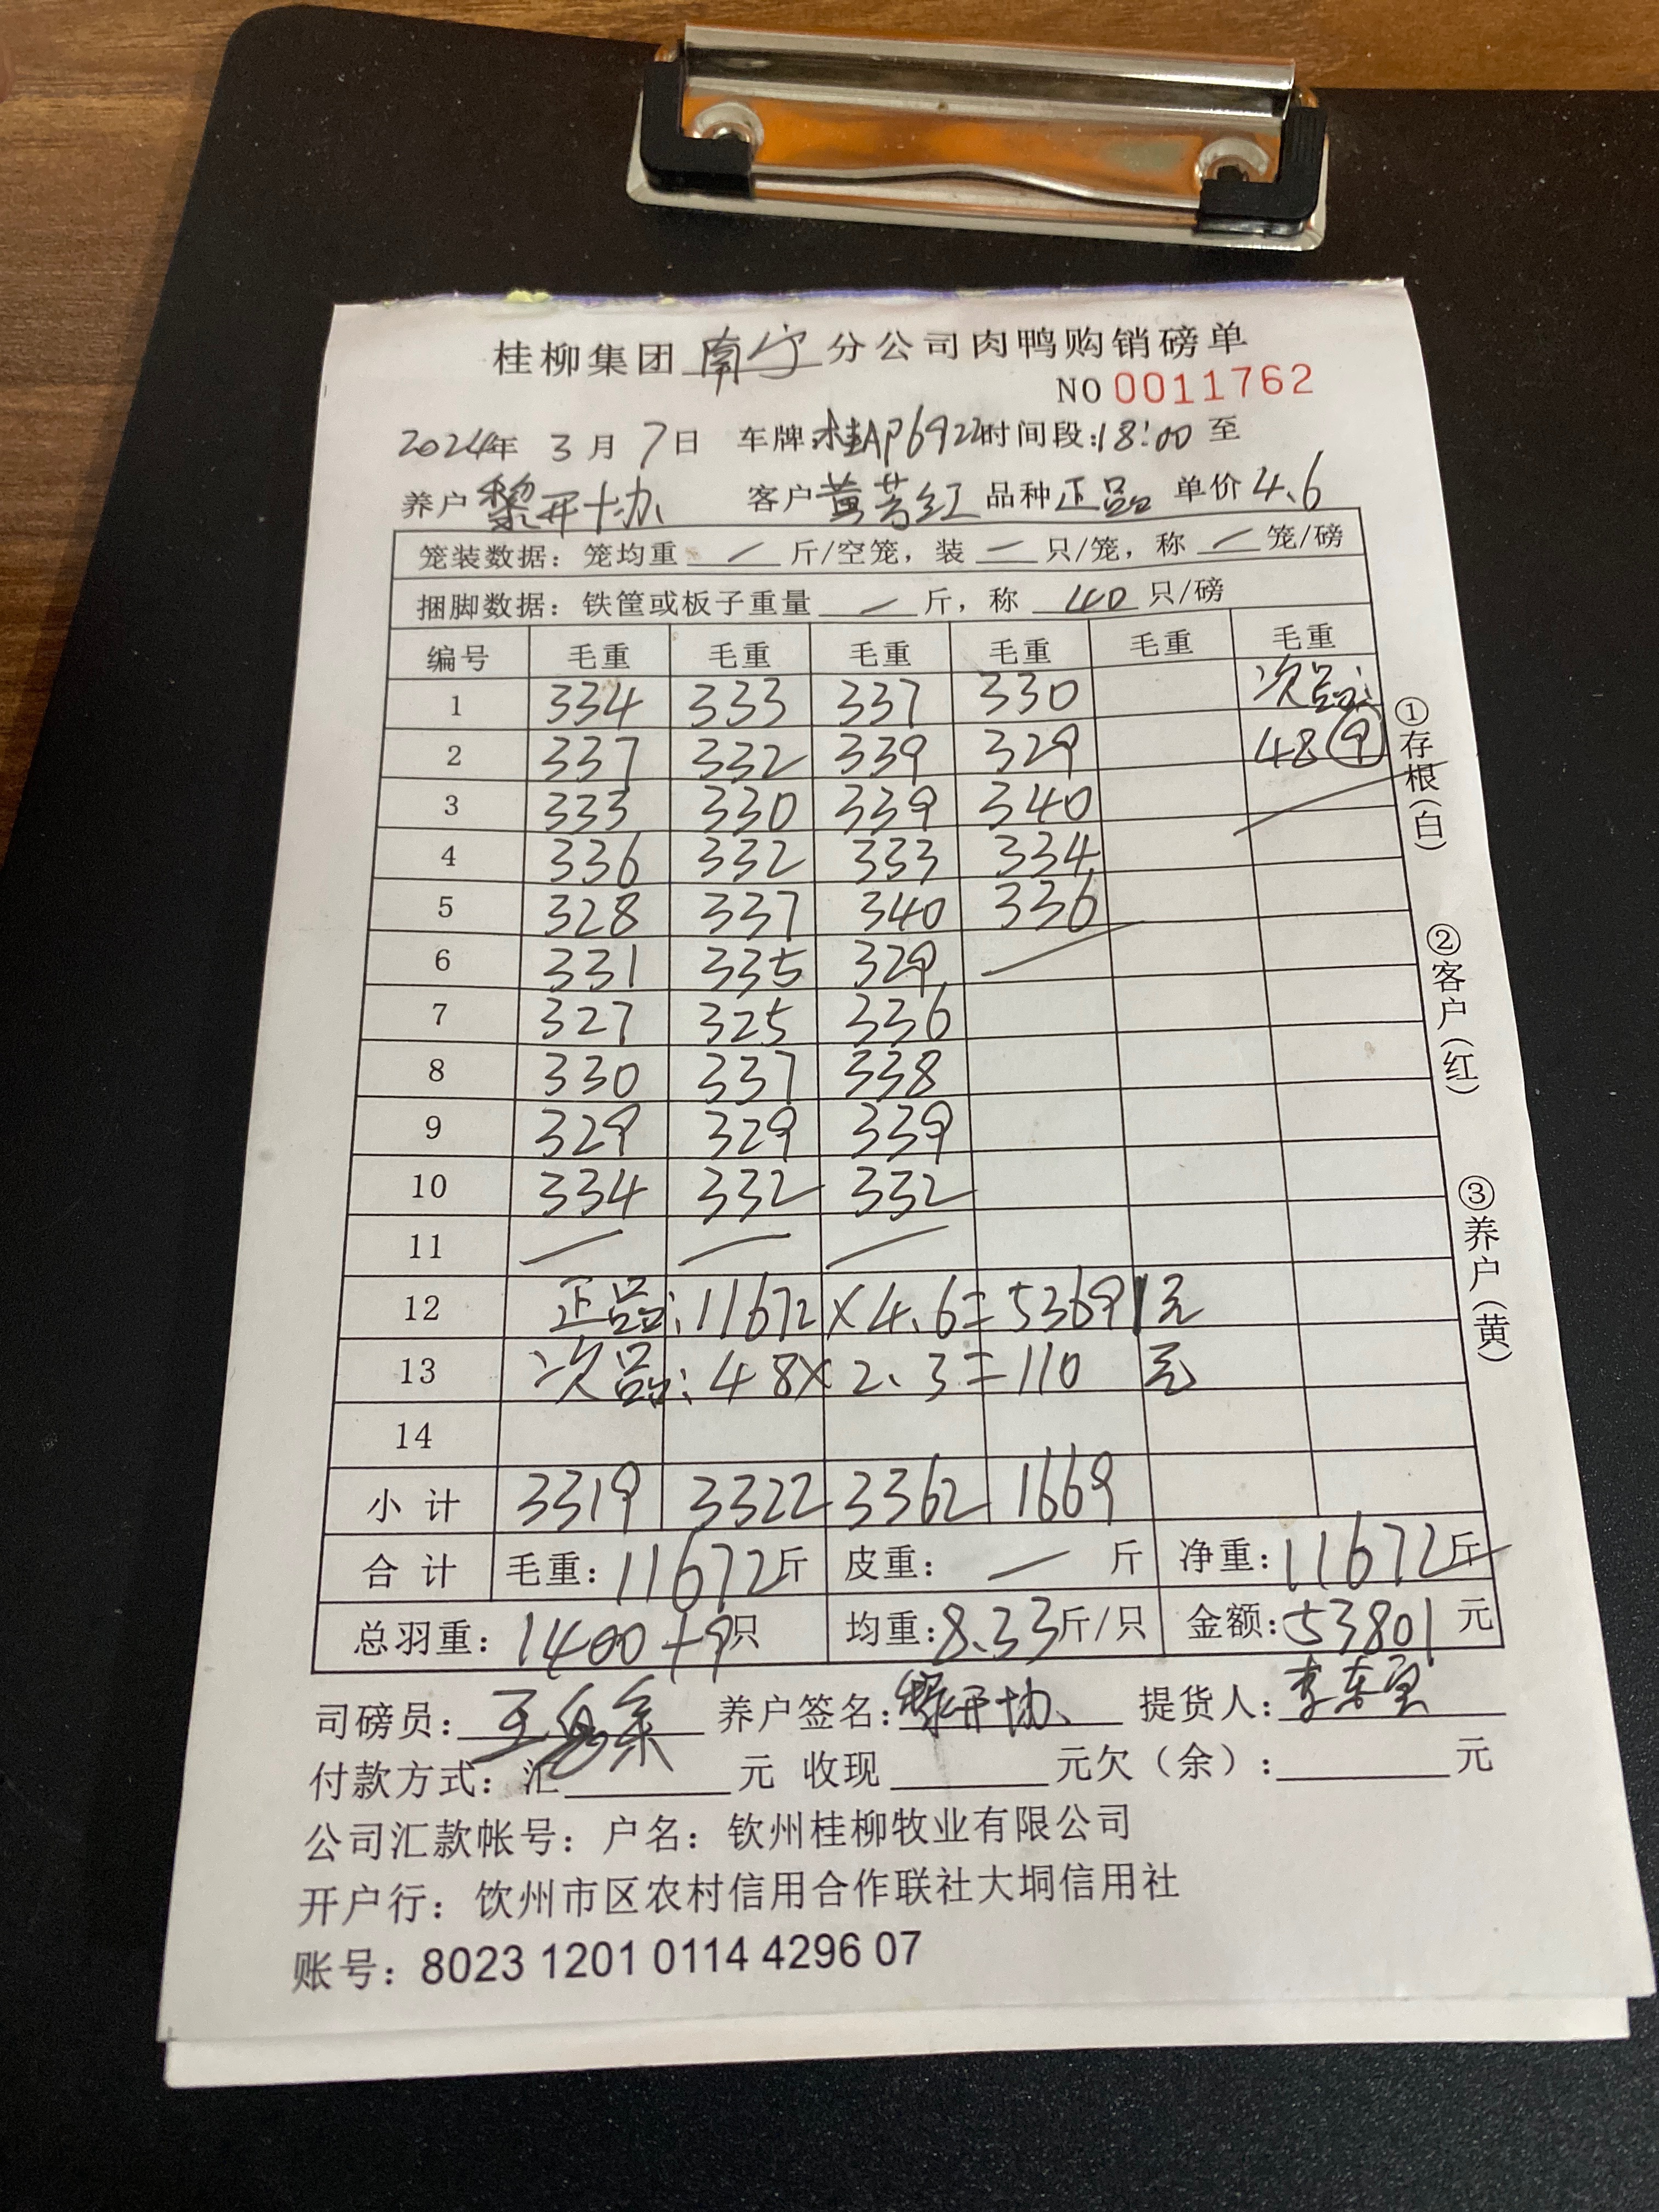 桂柳集团南宁分公司肉鸭购销磅单
NO 0011762
2024年 3月 7日 车牌:桂AP6922时间段:18:00至
养户黎开协 客户黄芳红 品种正品 单价4.6
笼装数据：笼均重 — 斤/空笼，装 — 只/笼，称 — 笼/磅
捆脚数据：铁筐或板子重量 — 斤，称 40 只/磅
编号 毛重 毛重 毛重 毛重 毛重 毛重
1 334 333 337 330 次品:
2 337 332 339 329 48⑨
3 333 330 339 340 —
4 336 332 333 334
5 328 337 340 336
6 331 335 329 —
7 327 325 336
8 330 337 338
9 329 329 339
10 334 332 332
11 — — —
12 正品:11672×4.6=53691元
13 次品:48×2.3=110元
14
小计 3319 3322 3362 1669
合计 毛重:11672斤 皮重: — 斤 净重:11672斤
总羽重:1400+9只 均重:8.33斤/只 金额:53801元
司磅员: 养户签名:黎开协 提货人:
付款方式：汇 元 收现 元欠（余）: 元
公司汇款帐号：户名：钦州桂柳牧业有限公司
开户行：饮州市区农村信用合作联社大垌信用社
账号：8023 1201 0114 4296 07
①存根(白)
②客户(红)
③养户(黄)